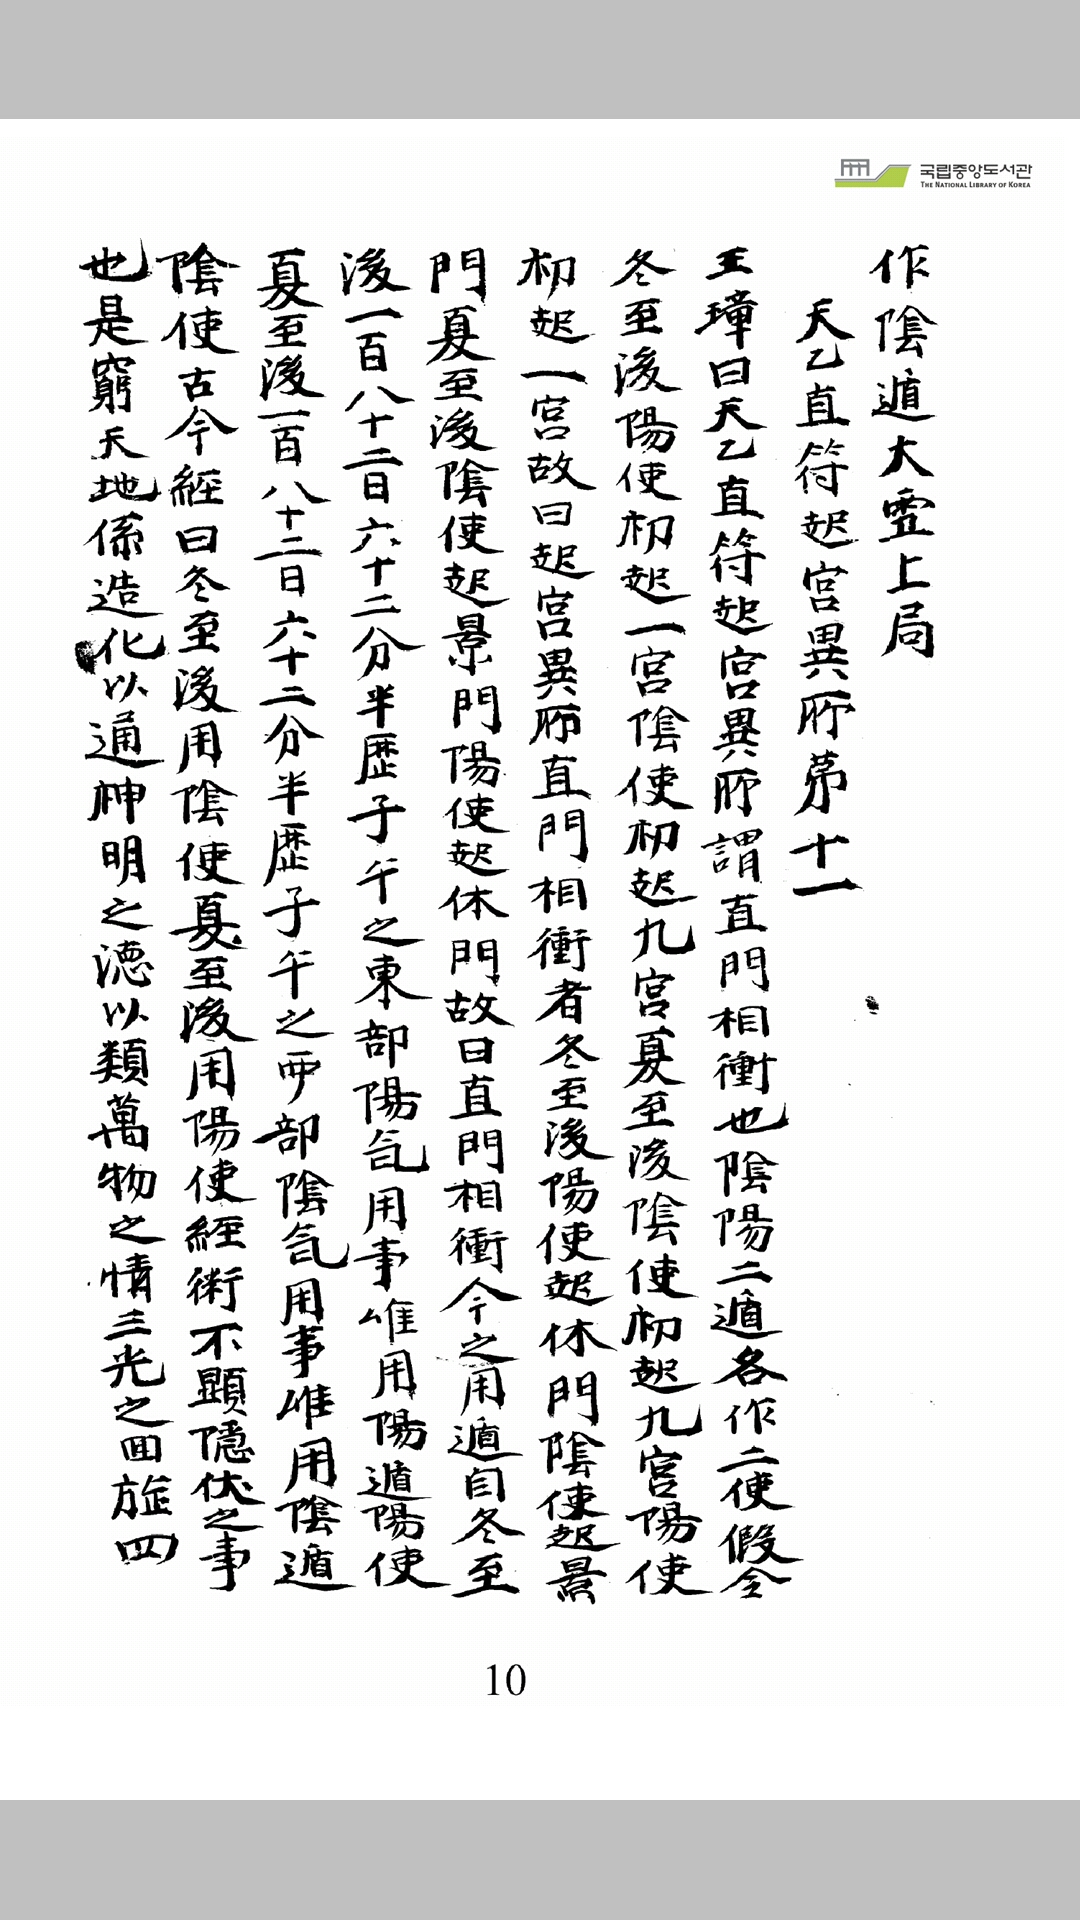 국립중앙도서관
THE NATIONAL LIBRARY OF KOREA
作陰遁大雲上局
天乙直符起宮異所苐十一
王璋曰天乙直符起宮異所謂直門相衝也陰陽二遁各作二使假令
冬至後陽使初起一宮陰使初起九宮夏至後陰使初起九宮陽使
初起一宮故曰起宮異所直門相衝者冬至後陽使起休門陰使起景
門夏至後陰使起景門陽使起休門故曰直門相衝今之用遁自冬至
後一百八十二日六十二分半歷子午之東部陽氣用事唯用陽遁陽使
夏至後一百八十二日六十二分半歷子午之西部陰氣用事唯用陰遁
陰使古今經曰冬至後用陰使夏至後用陽使經術不顯隱伏之事
也是窮天地係造化以通神明之德以類萬物之情三光之回旋四
10